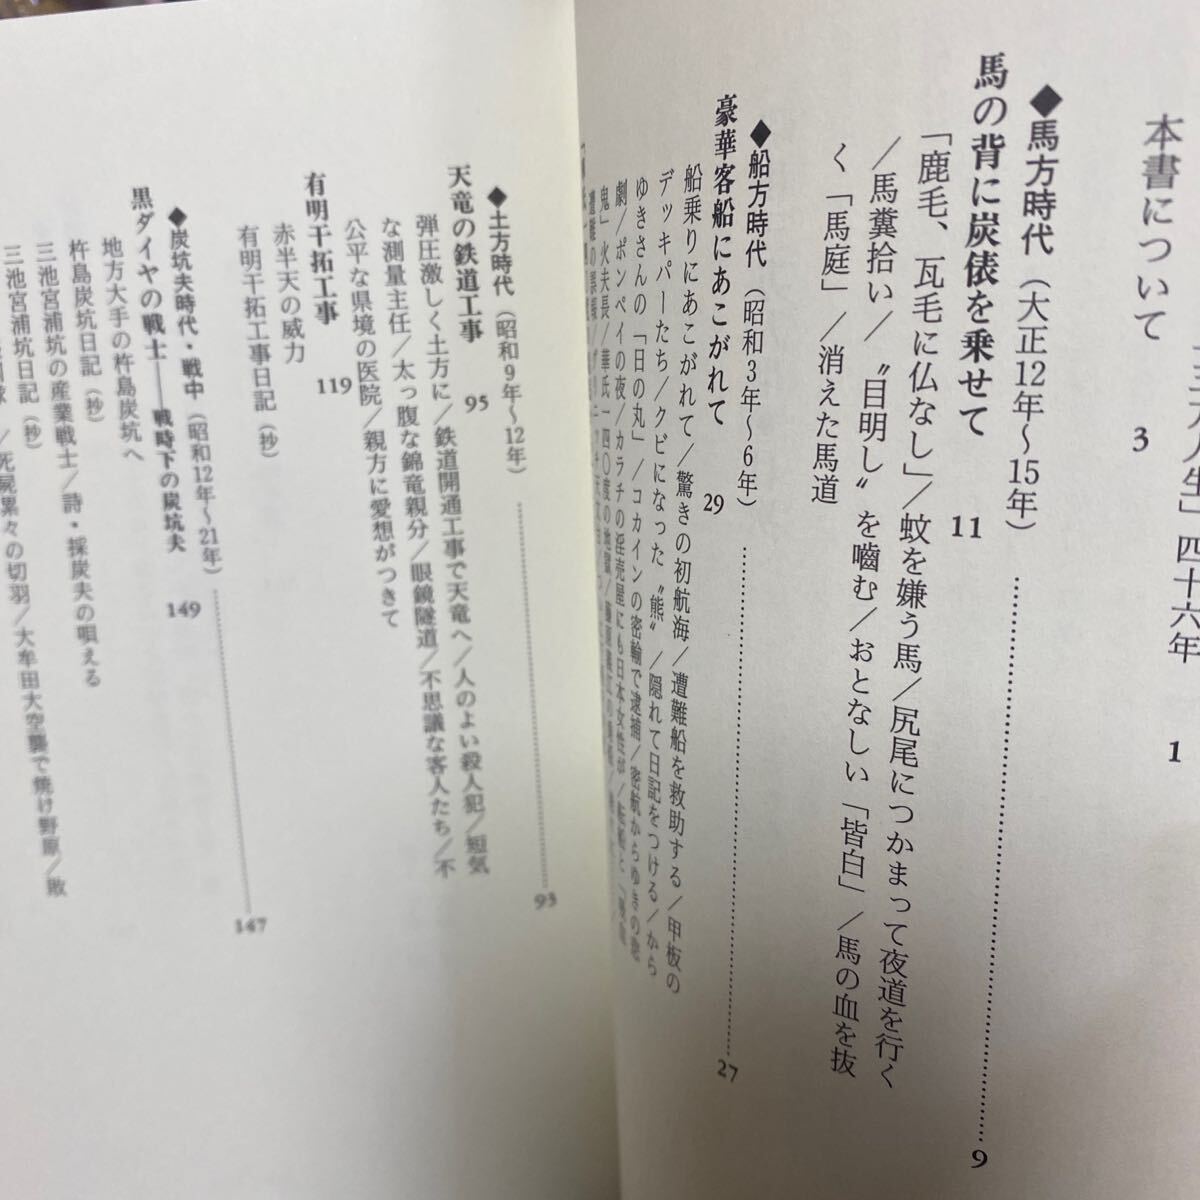 人生」四十六年 1
本書について 3
◆馬方時代（大正12年〜15年） 9
馬の背に炭俵を乗せて 11
「鹿毛、瓦毛に仏なし」／蚊を嫌う馬／尻尾につかまって夜道を行く
／馬糞拾い／〝目明し〟を嚙む／おとなしい「皆白」／馬の血を抜
く「馬庭」／消えた馬道
◆船方時代（昭和3年〜6年） 27
豪華客船にあこがれて 29
船乗りにあこがれて／驚きの初航海／遭難船を救助する／甲板の
デッキパーたち／クビになった〝熊〟／隠れて日記をつける／から
ゆきさんの「日の丸」／コカインの密輸で逮捕／密航からゆきの悲
劇／ボンベイの夜／カラチの淫売屋にも日本女性が
鬼」火夫長／華氏一四〇度の地獄
◆土方時代（昭和9年〜12年） 93
天竜の鉄道工事 95
弾圧激しく土方に／鉄道開通工事で天竜へ／人のよい殺人犯／短気
な測量主任／太っ腹な錦竜親分／眼鏡隧道／不思議な客人たち／不
公平な県境の医院／親方に愛想がつきて
有明干拓工事 119
赤半天の威力
有明干拓工事日記（抄）
◆炭坑夫時代・戦中（昭和12年〜21年） 147
黒ダイヤの戦士——戦時下の炭坑夫 149
地方大手の杵島炭坑へ
杵島炭坑日記（抄）
三池宮浦坑の産業戦士／詩・採炭夫の唄える
三池宮浦坑日記（抄）
／死屍累々の切羽／大牟田大空襲で焼け野原／敗